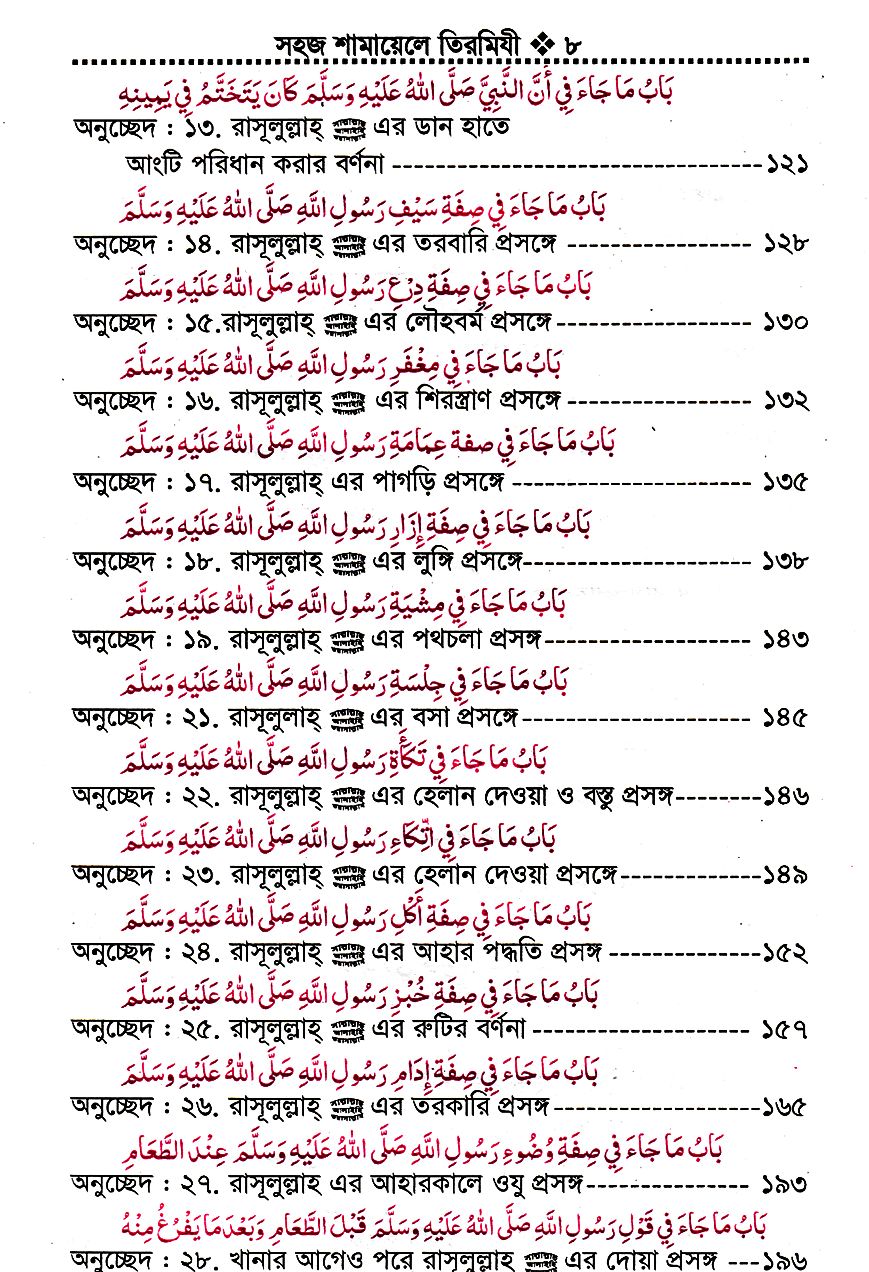 সহজ শামায়েলে তিরমিযী ❖ ৮
بَابُ مَا جَاءَ فِي أَنَّ النَّبِيَّ صَلَّى اللهُ عَلَيْهِ وَسَلَّمَ كَانَ يَتَخَتَّمُ فِي يَمِينِهِ
অনুচ্ছেদ : ১৩. রাসূলুল্লাহ্ ﷺ এর ডান হাতে
আংটি পরিধান করার বর্ণনা ----------------------------------১২১
بَابُ مَا جَاءَ فِي صِفَةِ سَيْفِ رَسُولِ اللَّهِ صَلَّى اللهُ عَلَيْهِ وَسَلَّمَ
অনুচ্ছেদ : ১৪. রাসূলুল্লাহ্ ﷺ এর তরবারি প্রসঙ্গে ----------------- ১২৮
بَابُ مَا جَاءَ فِي صِفَةِ دِرْعِ رَسُولِ اللَّهِ صَلَّى اللهُ عَلَيْهِ وَسَلَّمَ
অনুচ্ছেদ : ১৫.রাসূলুল্লাহ্ ﷺ এর লৌহবর্ম প্রসঙ্গে------------------ ১৩০
بَابُ مَا جَاءَ فِي مِغْفَرِ رَسُولِ اللَّهِ صَلَّى اللهُ عَلَيْهِ وَسَلَّمَ
অনুচ্ছেদ : ১৬. রাসূলুল্লাহ্ ﷺ এর শিরস্ত্রাণ প্রসঙ্গে----------------- ১৩২
بَابُ مَا جَاءَ فِي صفة عِمَامَةِ رَسُولِ اللَّهِ صَلَّى اللهُ عَلَيْهِ وَسَلَّمَ
অনুচ্ছেদ : ১৭. রাসূলুল্লাহ্ এর পাগড়ি প্রসঙ্গে ---------------------- ১৩৫
بَابُ مَا جَاءَ فِي صِفَةِ إِزَارِ رَسُولِ اللَّهِ صَلَّى اللهُ عَلَيْهِ وَسَلَّمَ
অনুচ্ছেদ : ১৮. রাসূলুল্লাহ্ ﷺ এর লুঙ্গি প্রসঙ্গে--------------------- ১৩৮
بَابُ مَا جَاءَ فِي مِشْيَةِ رَسُولِ اللَّهِ صَلَّى اللهُ عَلَيْهِ وَسَلَّمَ
অনুচ্ছেদ : ১৯. রাসূলুল্লাহ্ ﷺ এর পথচলা প্রসঙ্গ------------------- ১৪৩
بَابُ مَا جَاءَ فِي جِلْسَةِ رَسُولِ اللَّهِ صَلَّى اللهُ عَلَيْهِ وَسَلَّمَ
অনুচ্ছেদ : ২১. রাসূলুলাহ্ ﷺ এর বসা প্রসঙ্গে--------------------- ১৪৫
بَابُ مَا جَاءَ فِي تَكَأَةِ رَسُولِ اللَّهِ صَلَّى اللهُ عَلَيْهِ وَسَلَّمَ
অনুচ্ছেদ : ২২. রাসূলুল্লাহ্ ﷺ এর হেলান দেওয়া ও বস্তু প্রসঙ্গ--------১৪৬
بَابُ مَا جَاءَ فِي اتِّكَاءِ رَسُولِ اللَّهِ صَلَّى اللهُ عَلَيْهِ وَسَلَّمَ
অনুচ্ছেদ : ২৩. রাসূলুল্লাহ্ ﷺ এর হেলান দেওয়া প্রসঙ্গে-------------১৪৯
بَابُ مَا جَاءَ فِي صِفَةِ أَكْلِ رَسُولِ اللَّهِ صَلَّى اللهُ عَلَيْهِ وَسَلَّمَ
অনুচ্ছেদ : ২৪. রাসূলুল্লাহ্ ﷺ এর আহার পদ্ধতি প্রসঙ্গ --------------১৫২
بَابُ مَا جَاءَ فِي صِفَةِ خُبْزِ رَسُولِ اللَّهِ صَلَّى اللهُ عَلَيْهِ وَسَلَّمَ
অনুচ্ছেদ : ২৫. রাসূলুল্লাহ্ ﷺ এর রুটির বর্ণনা -------------------- ১৫৭
بَابُ مَا جَاءَ فِي صِفَةِ إِدَامِ رَسُولِ اللَّهِ صَلَّى اللهُ عَلَيْهِ وَسَلَّمَ
অনুচ্ছেদ : ২৬. রাসূলুল্লাহ্ ﷺ এর তরকারি প্রসঙ্গ-------------------১৬৫
بَابُ مَا جَاءَ فِي صِفَةِ وُضُوءِ رَسُولِ اللَّهِ صَلَّى اللهُ عَلَيْهِ وَسَلَّمَ عِنْدَ الطَّعَامِ
অনুচ্ছেদ : ২৭. রাসূলুল্লাহ এর আহারকালে ওযু প্রসঙ্গ--------------- ১৯৩
بَابُ مَا جَاءَ فِي قَوْلِ رَسُولِ اللَّهِ صَلَّى اللهُ عَلَيْهِ وَسَلَّمَ قَبْلَ الطَّعَامِ وَبَعْدَ مَا يَفْرُغُ مِنْهُ
অনুচ্ছেদ : ২৮. খানার আগেও পরে রাসূলুল্লাহ্ ﷺ এর দোয়া প্রসঙ্গ ---১৯৬